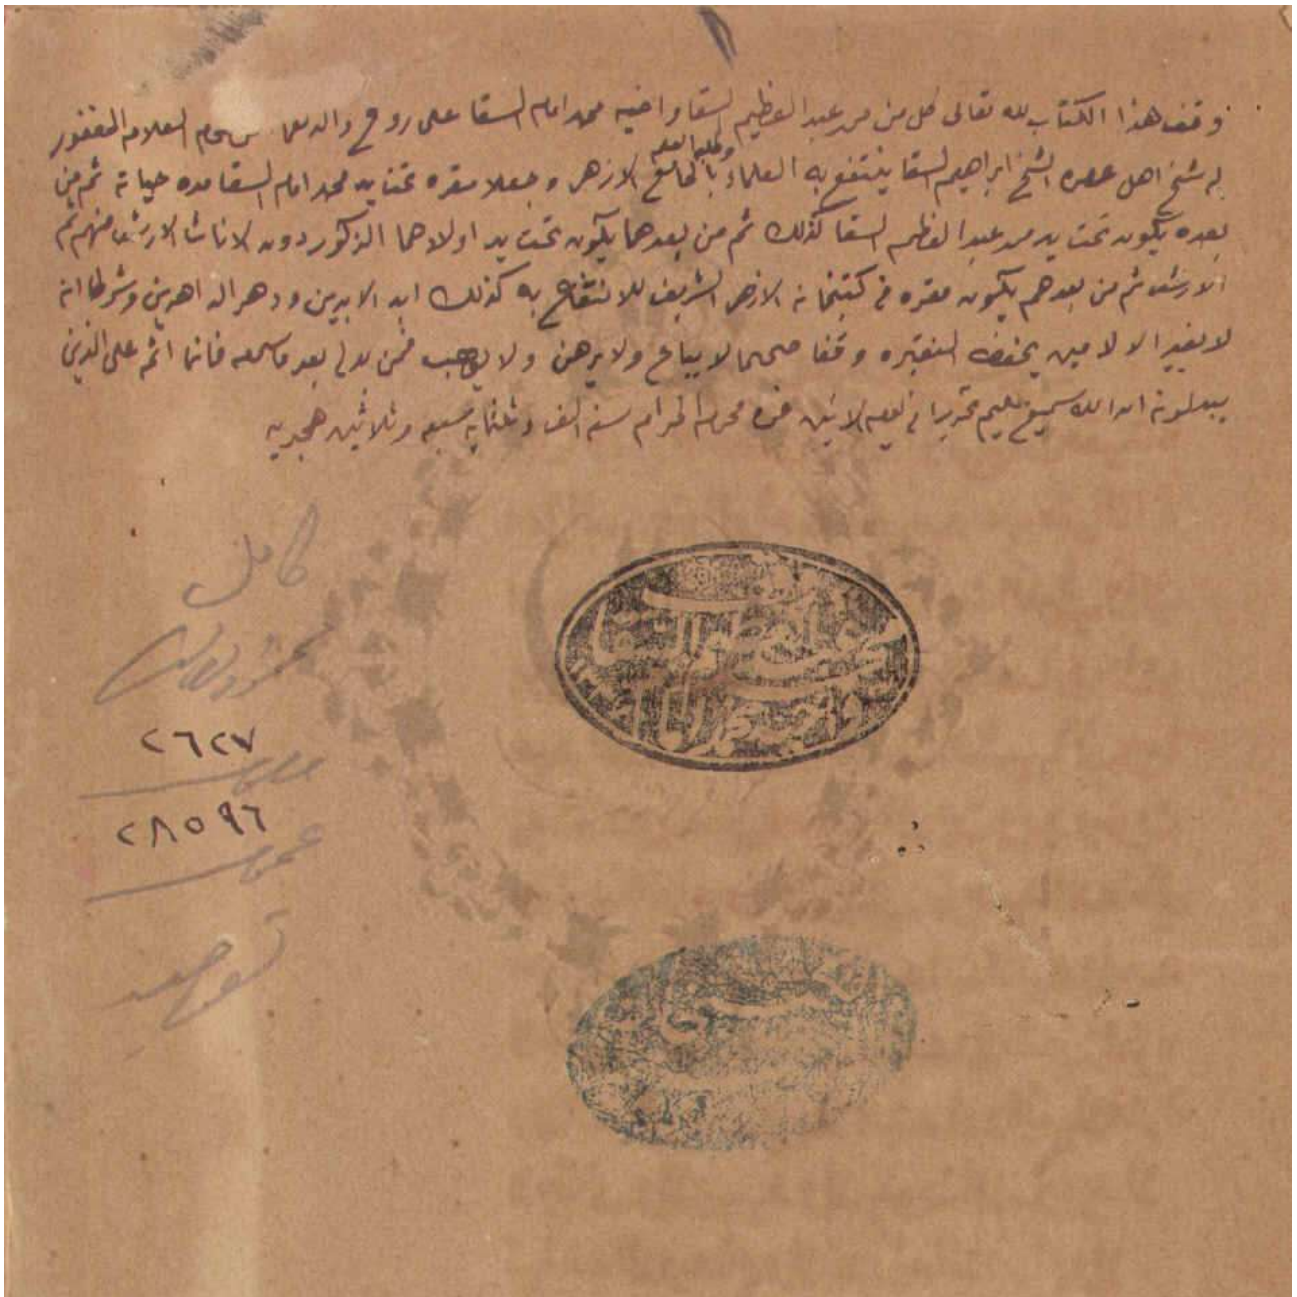 وقف هذا الكتاب لله تعالى كل من محمد عبد العظيم السقا واخيه محمد امام السقا على روح والدهما العلامه المغفور
وطلبة العلم
له شيخ اهل عصره الشيخ ابراهيم السقا ينتفع به العلماء بالجامع الازهر وجعلا مقره تحت يد محمد امام السقا مده حياته ثم من
بعده يكون تحت يد محمد عبد العظيم السقا كذلك ثم من بعدهما يكون تحت يد اولادهما الذكور دون الاناث الارشد منهم ثم
الارشد ثم من بعدهم يكون مقره في كتبخانة الازهر الشريف للانتفاع به كذلك ابد الابدين ودهر الداهرين وشرطا انه
لا يغير الا لامين يحفظه وقفا صحيحا لا يباع ولا يرهن ولا يوهب فمن بدله بعد ما سمعه فانما اثمه على الذين
يبدلونه ان الله سميع عليم تحريرا في ليلة الاثنين غرة محرم الحرام سنه الف وثلثمايه سبعه وثلاثين هجريه
كامل
٢٦٢٧
٢٨٥٩٦
عمومية
توحيد
وقف
محمد عبد العظيم السقا
واخيه محمد امام